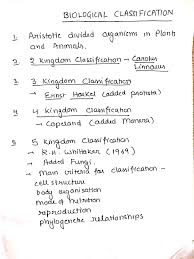 BIOLOGICAL CLASSIFICATION
1. Aristotle divided organism in Plants
and Animals.
2. 2 Kingdom Classification - Carolus
Linnaeus
3. 3 Kingdom Classification
→ Ernst Haeckel (added protista)
4. 4 Kingdom Classification
→ Copeland (added Monera)
5. 5 Kingdom Classification
- R.H Whittaker (1969)
→ Added Fungi.
→ Main criteria for classification -
cell structure
body organisation
mode of nutrition
reproduction
phylogenetic relationships